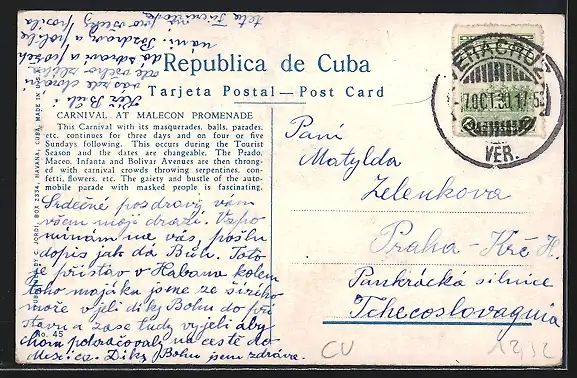 Republica de Cuba
Tarjeta Postal—Post Card
CARNIVAL AT MALECON PROMENADE
This Carnival with its masquerades, balls, parades,
etc. continues for three days and on four or five
Sundays following. This occurs during the Tourist
Season and the dates are changeable. The Prado,
Maceo, Infanta and Bolivar Avenues are then throng-
ed with carnival crowds throwing serpentines, con-
fetti, flowers, etc. The gaiety and bustle of the auto-
mobile parade with masked people is fascinating.
Srdečné pozdravy vám
všem moji drazí. Vzpo-
mínám na vás, pošlu
dopis jak dá Bůh. Toto
je přístav v Habana kolem
toho majáku jsme ze širého
moře vjeli díky Bohu do pří-
stavu a zase tudy vyjeli aby
chom pokračovali na cestě do
Mexica. Díky Bohu jsem zdráva.
Paní
Matylda
Zelenkova
Praha - Krč II.
Pankrácká silnice
Tchecoslovaquia
VERACRUZ
7 OCT. 30
VER.
JORDI, BOX 2334, HAVANA, CUBA, MADE IN U.S.A.
No. 45
CU